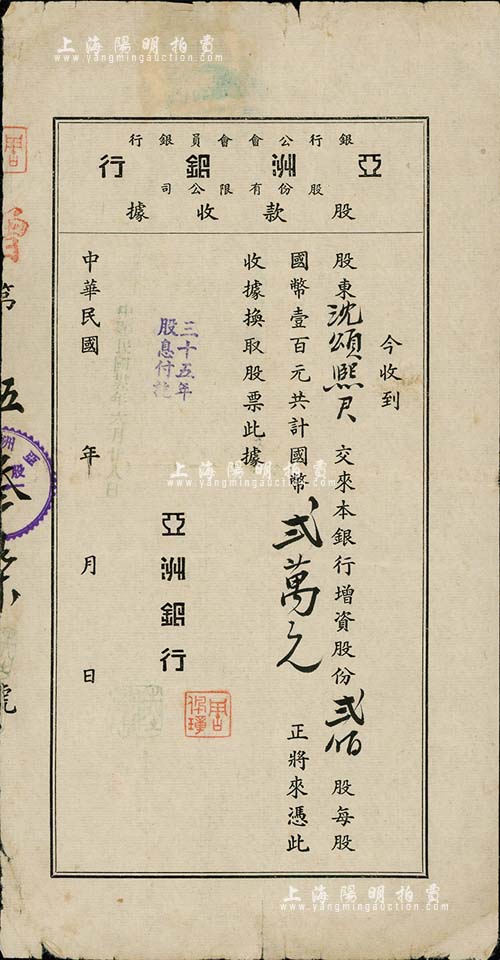 上海陽明拍賣
www.yangmingauction.com
銀行公會會員銀行
亞洲銀行
股份有限公司
股款收據
今收到
股東沈頌熙君交來本銀行增資股份弍佰股每股
國幣壹百元共計國幣弍萬元正將來憑此
收據換取股票此據
三十五年
股息付訖
亞洲銀行
中華民國年月日
第
號
上海陽明拍賣
www.yangmingauction.com
上海陽明拍賣
www.yangmingauction.com